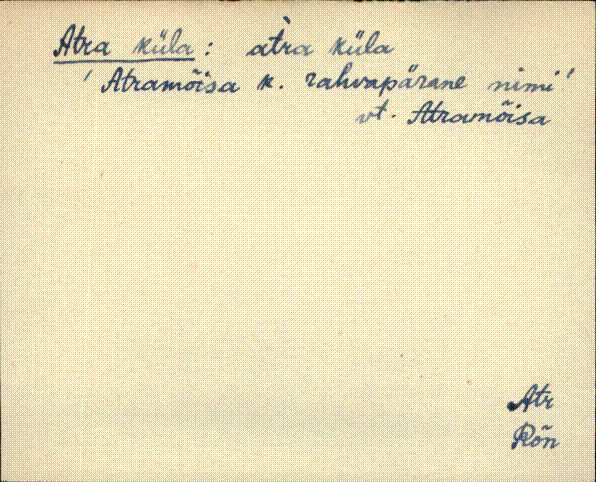 Atra küla: at̀ra küla
'Atramõisa k. rahvapärane nimi'
vt. Atramõisa
Atr
Rõn